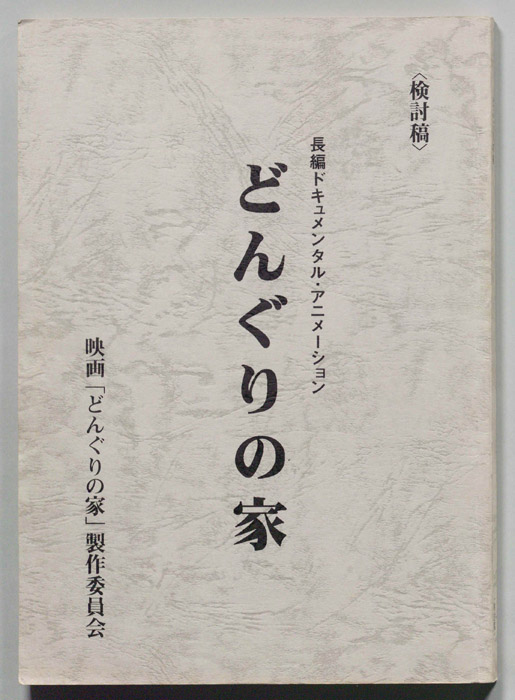 〈検討稿〉
長編ドキュメンタル・アニメーション
どんぐりの家
映画「どんぐりの家」製作委員会